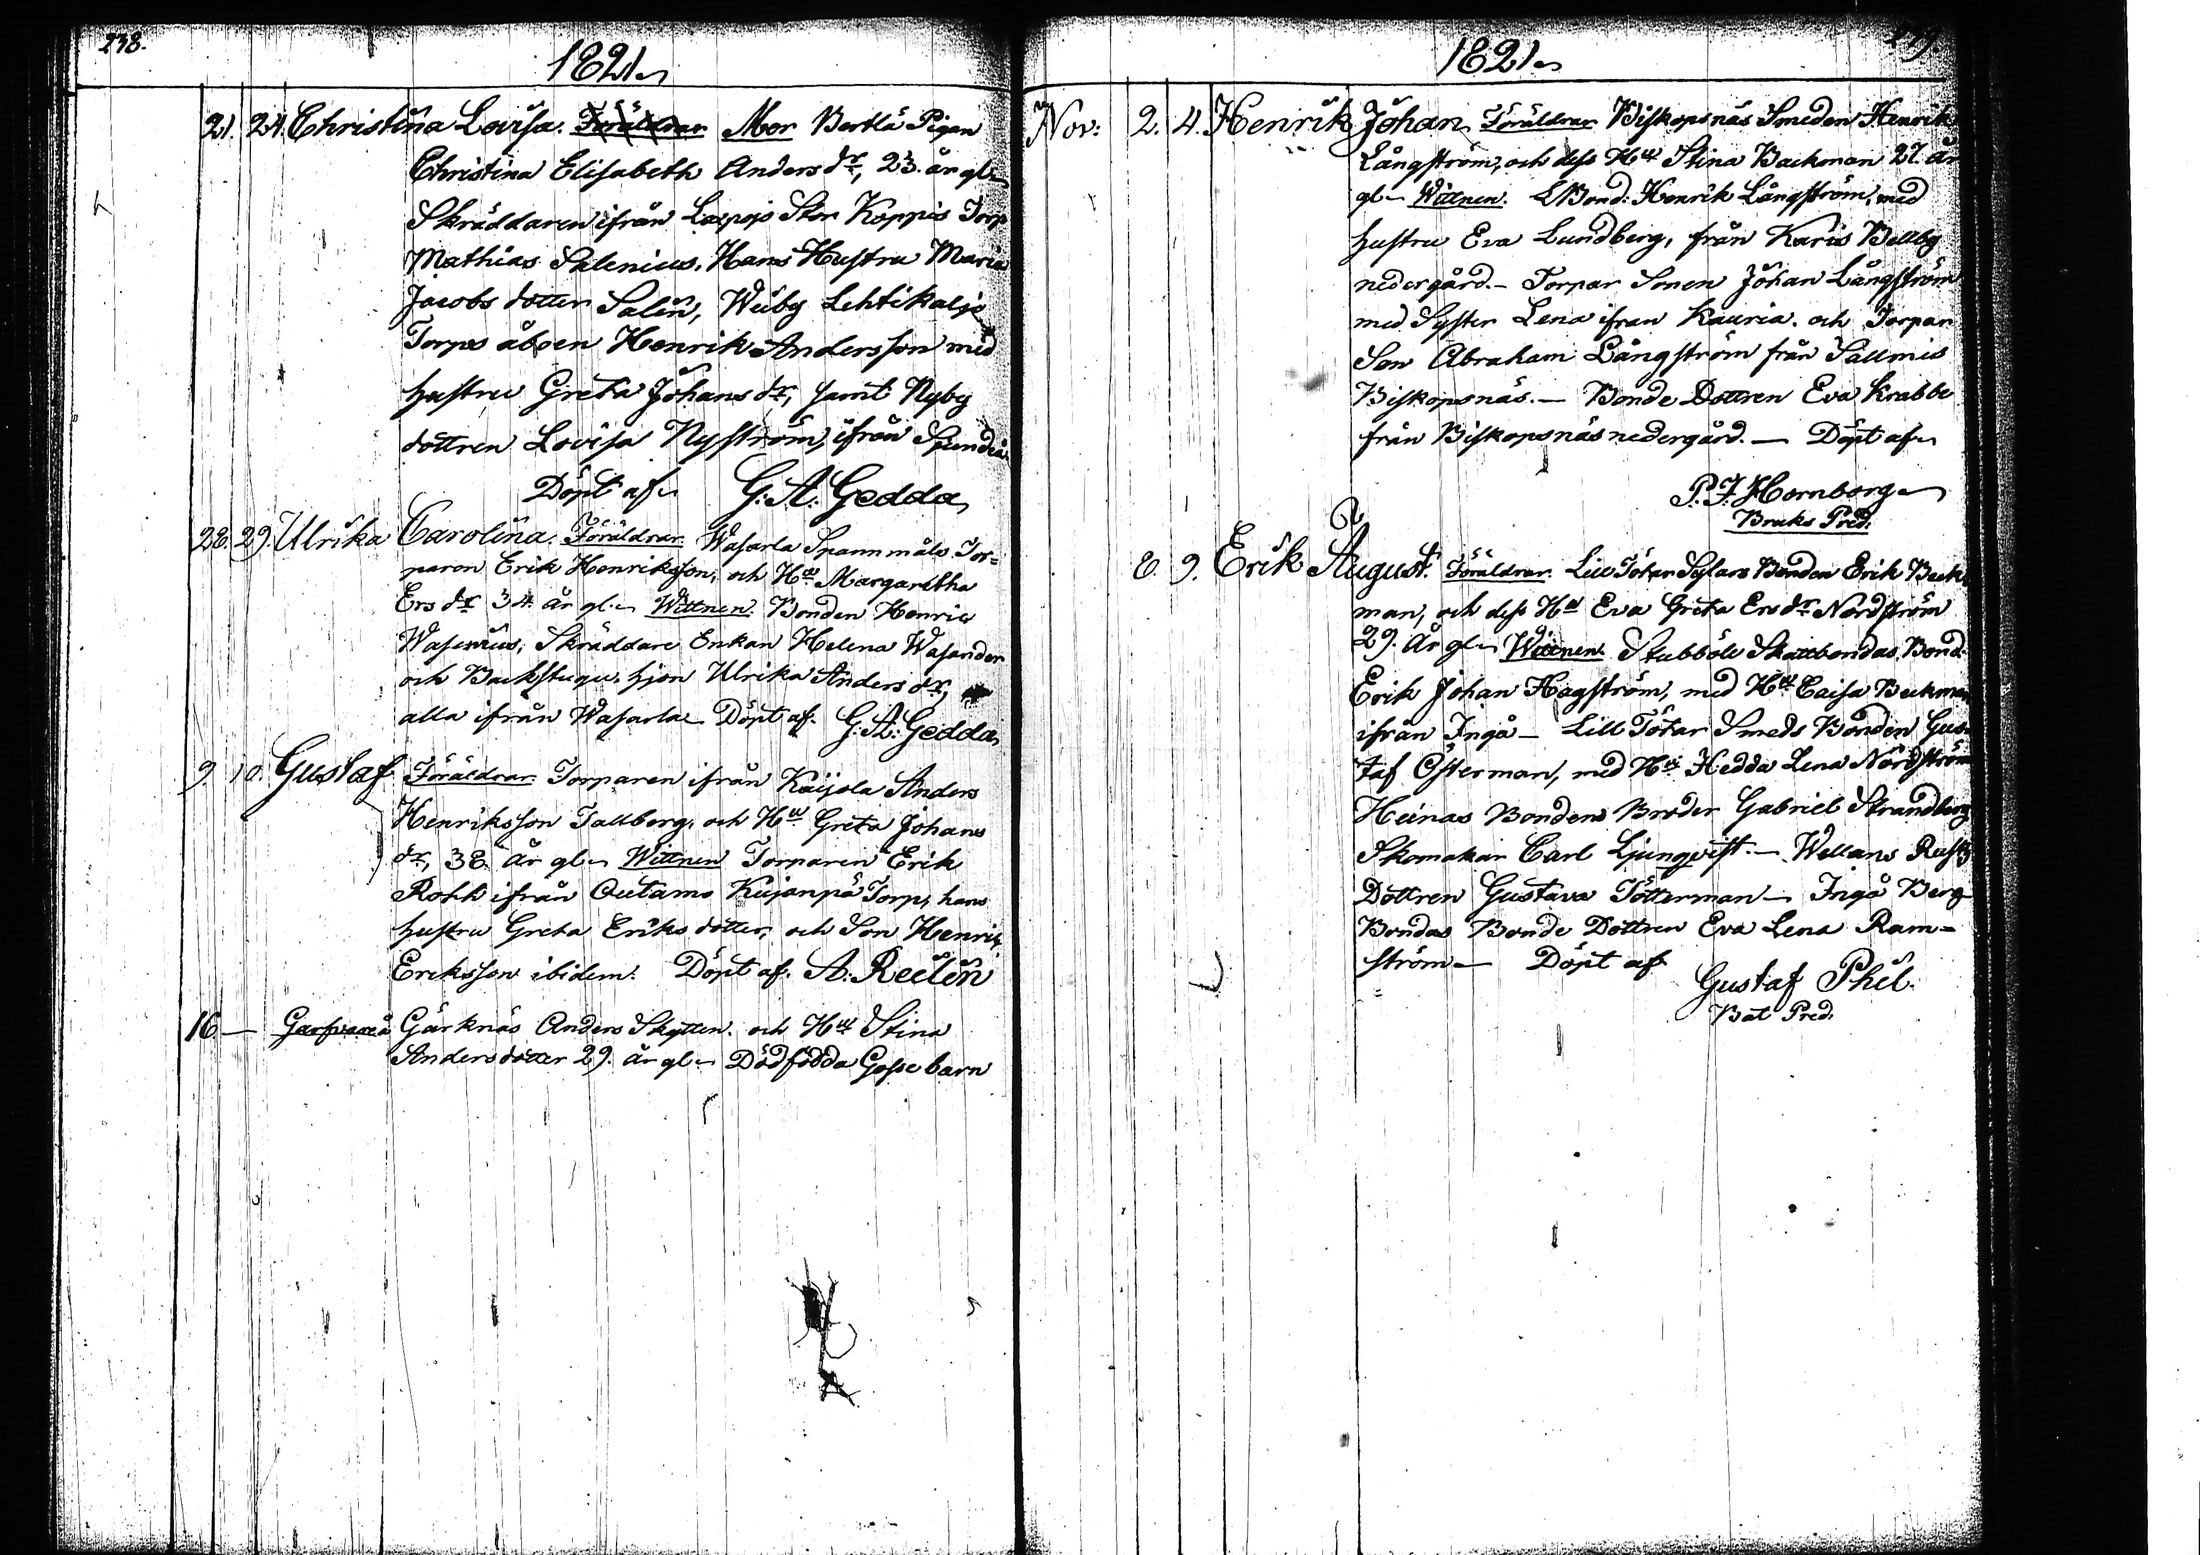 238.
1821
21. 24. Christina Lovisa. Föräldrar Mor Bertlä Pigan
Christina Elisabeth Anders dr, 23. år gl
Skräddaren ifrån Loxpojo Stor Koppis Torp
Mathias Salenius, Hans Hustru Maria
Jacobs dotter Salèn, Weiby Lehtikaljo
Torps åboen Henrik Andersson med
hustru Greta Johans dr, samt Nyby
dottren Lovisa Nyström, ifrån
Döpt af G. A. Gedda
28. 29. Ulrika Carolina. Föräldrar Wasarla Spannmåls Tor=
paren Erik Henriksson, och Hu Margaretha
Ers dr 34 år gl. Wittnen Bonden Henric
Wasenius, Skräddare Enkan Helena Wasander
och Backstugu hjon Ulrika Anders dr,
alla ifrån Wasarla Döpt af. G. A. Gedda
9. 10. Gustaf Föräldrar Torparen ifrån Kaijola Anders
Henriksson Tallberg, och Hu Greta Johans
dr, 38 år gl Wittnen Torparen Erik
Rohk ifrån Outamo Kujanpä Torp, hans
hustru Greta Eriks dotter, och Son Henric
Eriksson ibidem. Döpt af. A. Reilin
16. — Gärknäs Anders Skytten. och Hu Stina
Anders dotter 29. år gl Dödfödda Gosse barn
239.
1821
Nov: 2. 4. Henrik Johan Föräldrar Biskopsnäs Smeden Henrik
Långström, och dess Hu Stina Backman 27. år
gl Wittnen. Bond: Henrik Långström, med
hustru Eva Lundberg, från Karis Bellby
nedergård. — Torpar Sonen Johan Långström
med Syster Lena ifran Kauria. och Torpar
Son Abraham Långström från Sällmis
Biskopsnäs. — Bonde Dottren Eva Krabbe
från Biskopsnäs nedergård. — Döpt af
P. F. Hornborg
Bruks Pred.
8. 9. Erik August. Föräldrar. Lill Tötar Sylars Bonden Erik Beck
man, och dess Hu Eva Greta Ers dr Nordström
29. År gl Wittnen Stubböle Skattbondas Bond.
Erik Johan Hagström, med Hu Caisa Beckman
ifrån Ingå — Lill Tötar Smeds Bonden Gus
taf Österman, med Hu Hedda Lena Nordström
Heinas Bondens Broder Gabriel Strandberg
Skomakar Carl Ljungqvist. — Wellans Rusth
Dottren Gustava Tötterman — Ingå Berg
Bondas Bonde Dottren Eva Lena Ram=
ström — Döpt af
Gustaf Phil.
Bat Pred.